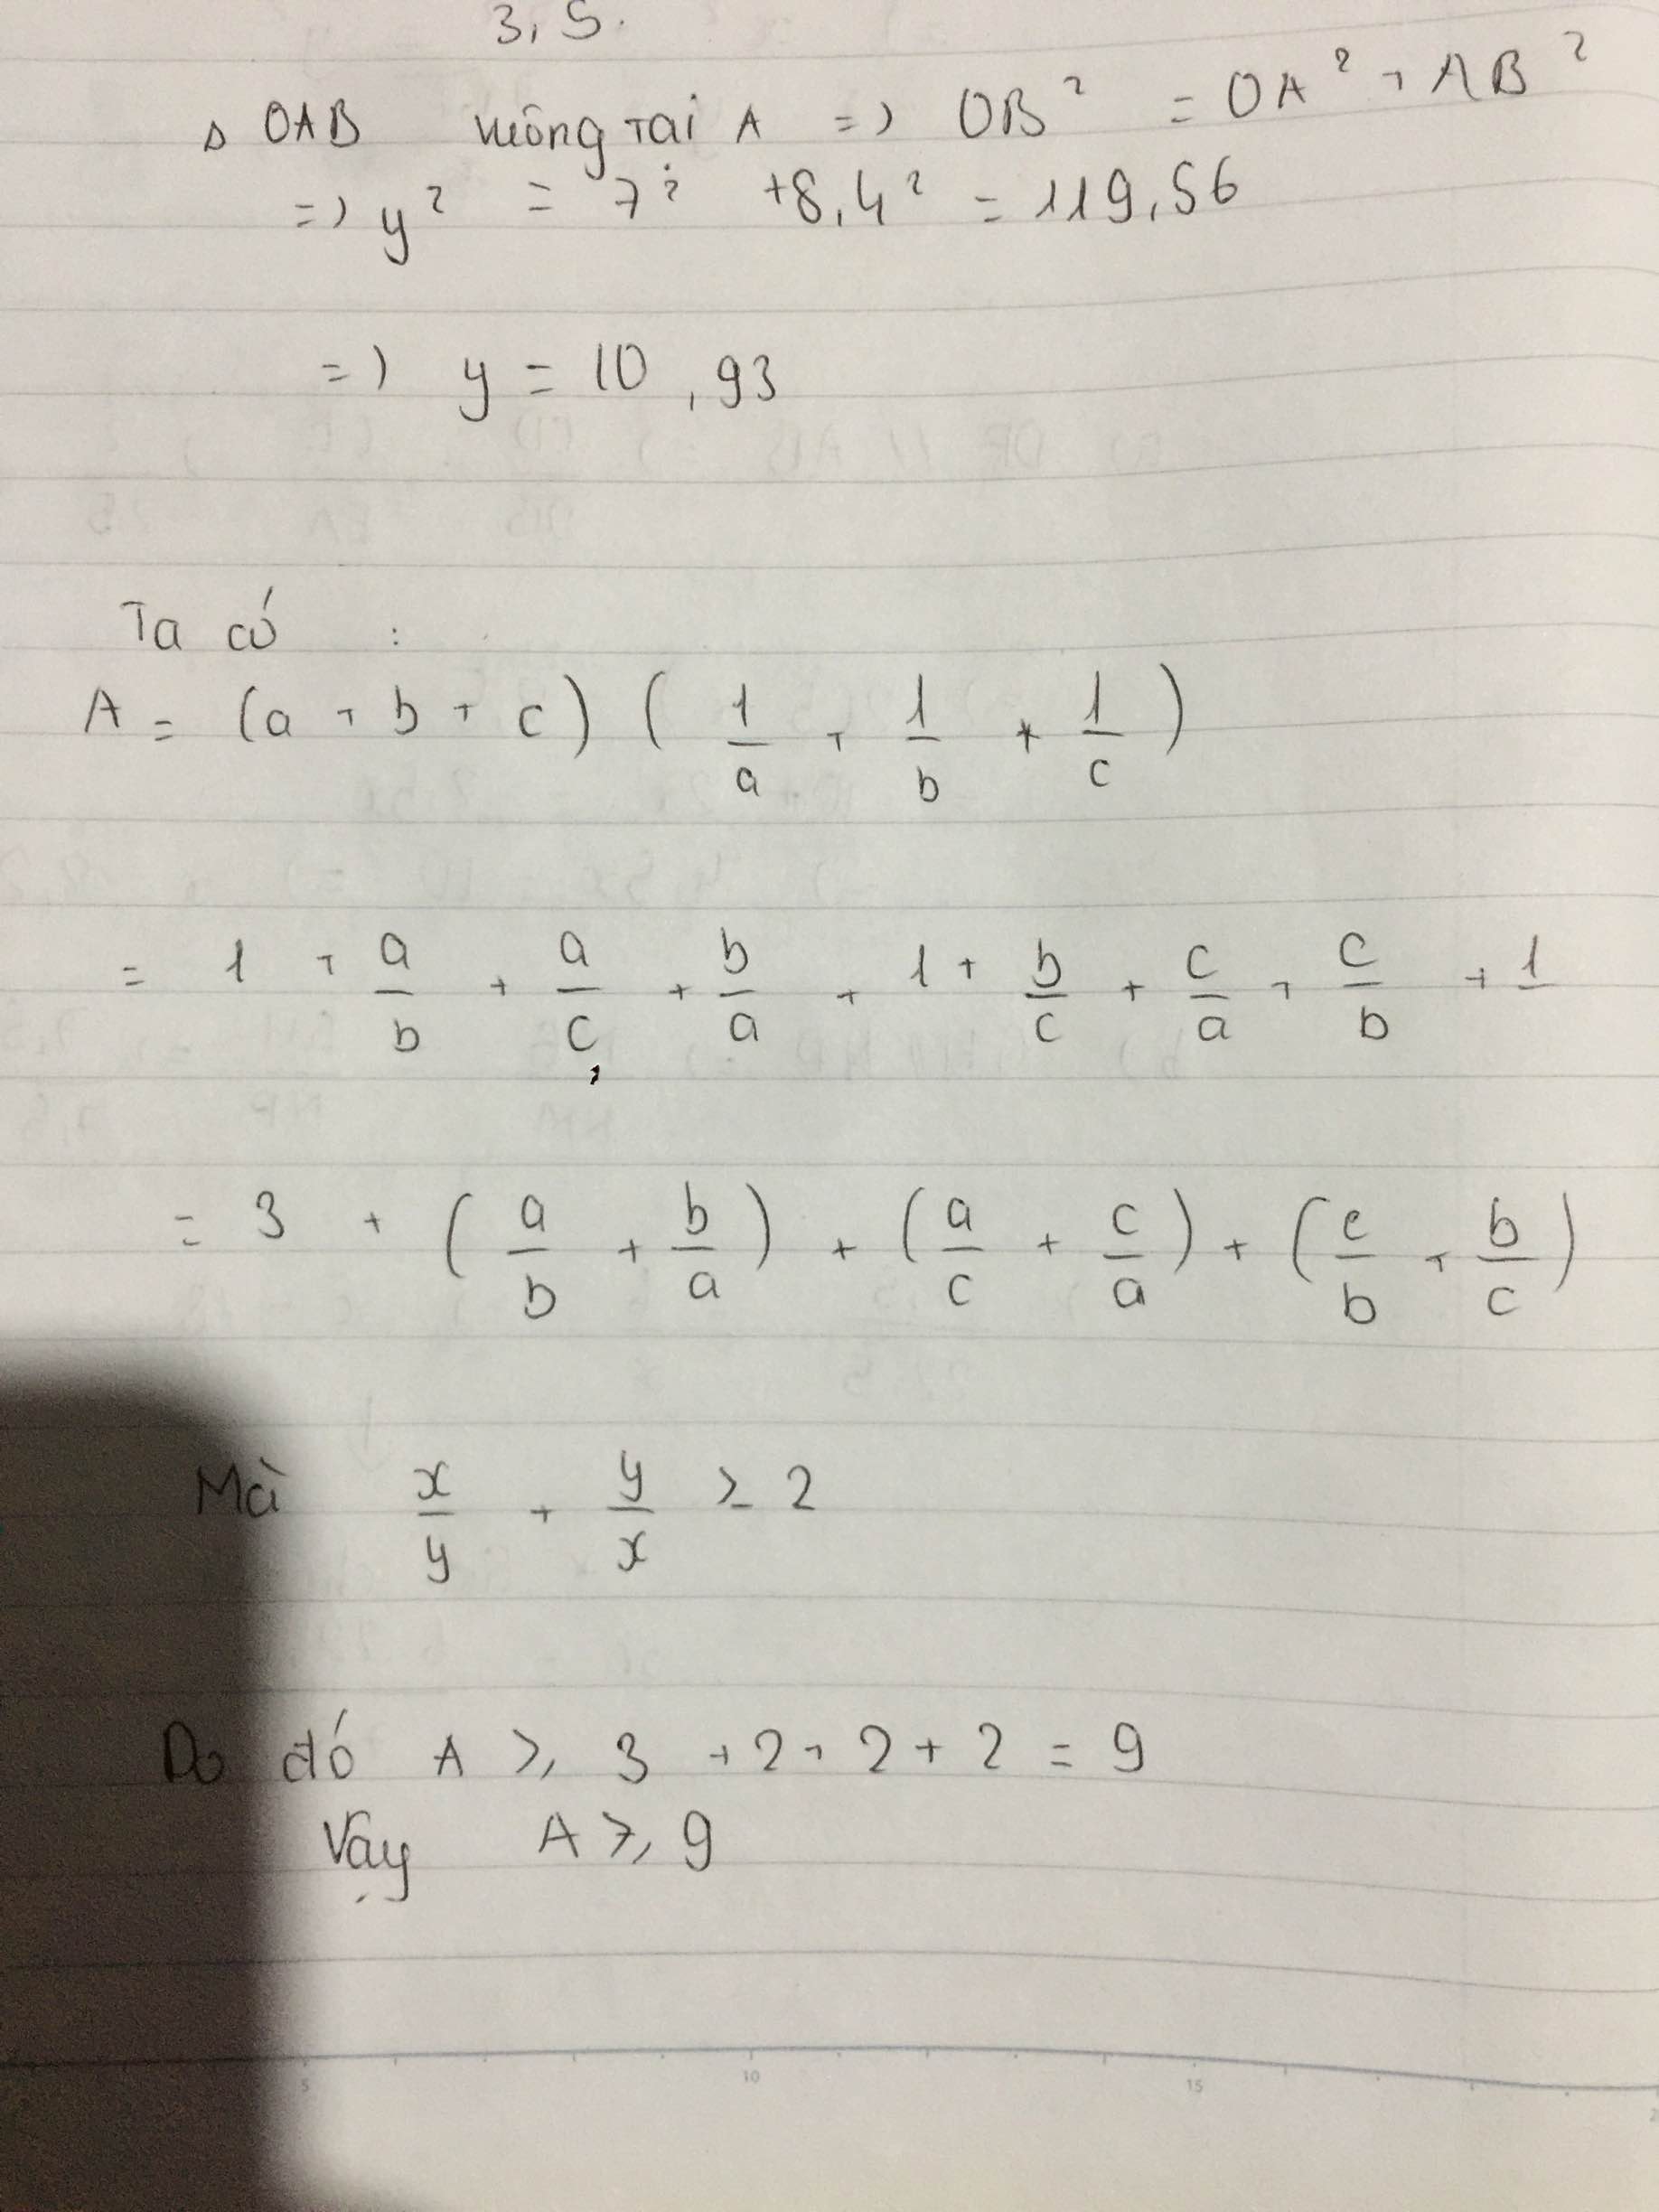 3,5.
Δ OAB vuông tại A => OB² = OA² + AB²
=> y² = 7² + 8,4² = 119,56
=> y = 10,93
Ta có :
A = (a + b + c) ( 1/a + 1/b + 1/c )
= 1 + a/b + a/c + b/a + 1 + b/c + c/a + c/b + 1
= 3 + ( a/b + b/a ) + ( a/c + c/a ) + ( c/b + b/c )
Mà x/y + y/x ≥ 2
Do đó A ≥ 3 + 2 + 2 + 2 = 9
Vậy A ≥ 9
5 10 15